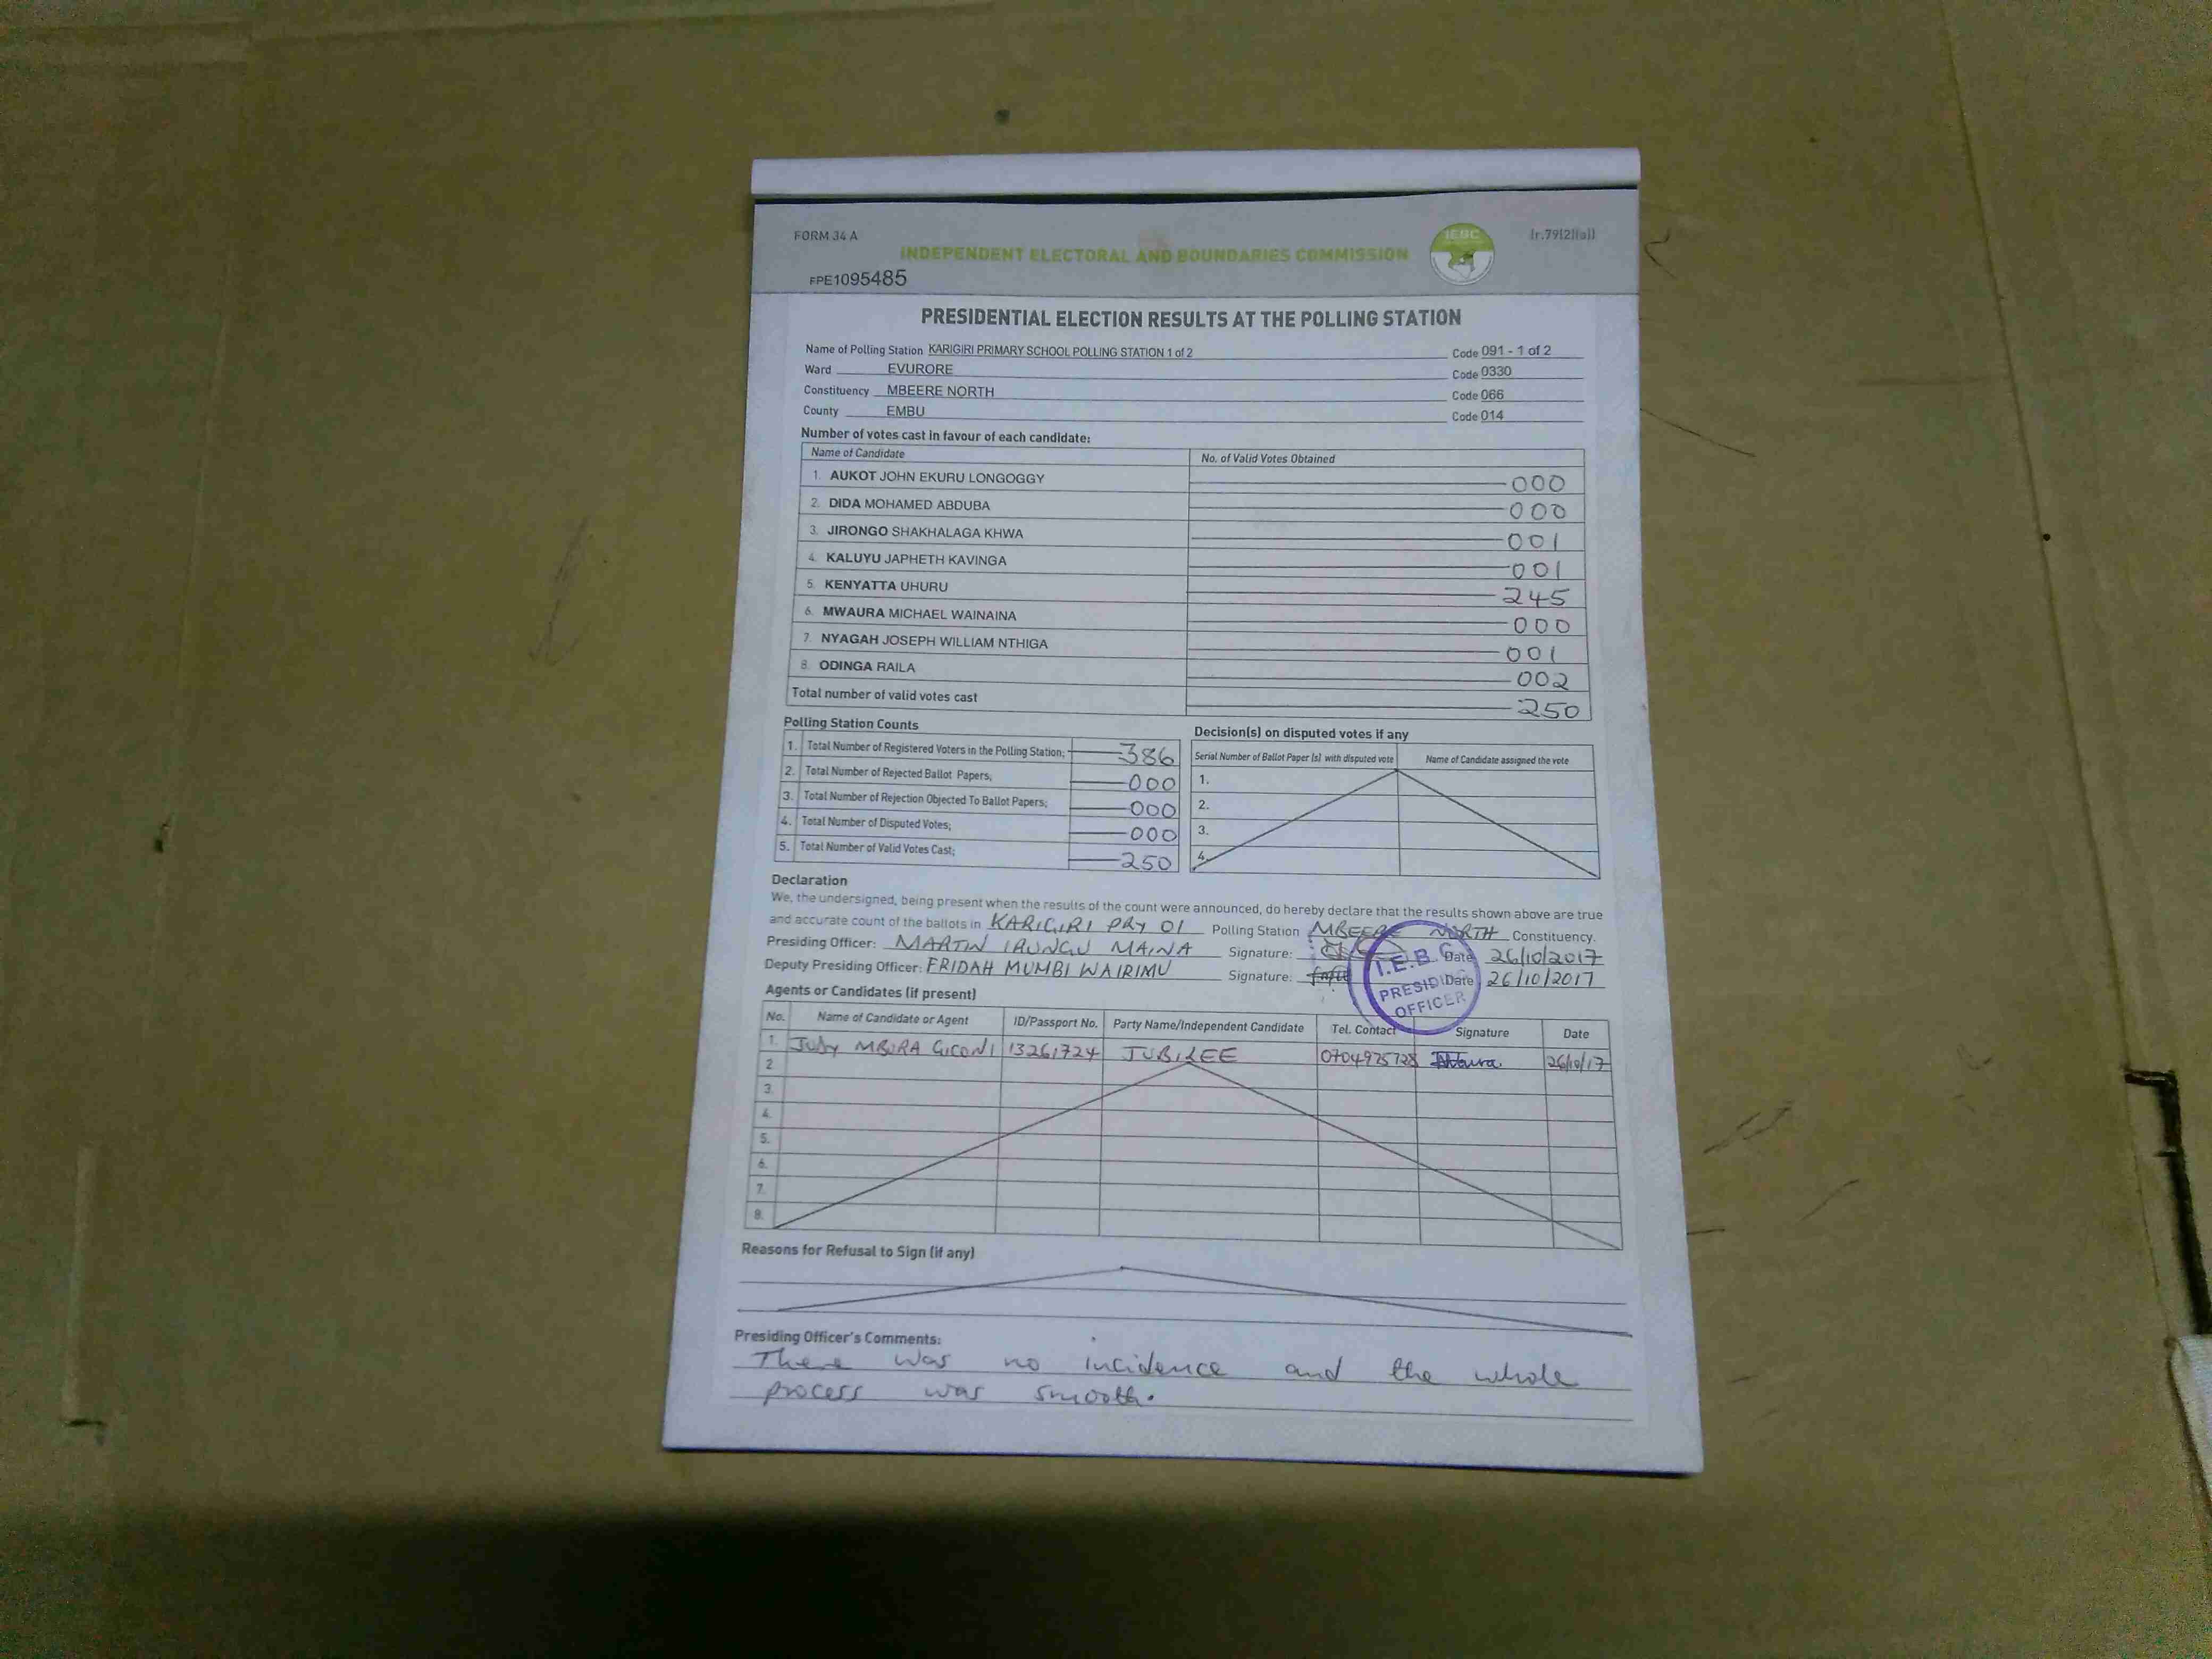 FORM 34 A
INDEPENDENT ELECTORAL AND BOUNDARIES COMMISSION
IEBC
(r.79(2)(a))
FPE1095485
PRESIDENTIAL ELECTION RESULTS AT THE POLLING STATION
Name of Polling Station KARIGIRI PRIMARY SCHOOL POLLING STATION 1 of 2 Code 091 - 1 of 2
Ward EVURORE Code 0330
Constituency MBEERE NORTH Code 066
County EMBU Code 014
Number of votes cast in favour of each candidate:
Name of Candidate No. of Valid Votes Obtained
1. AUKOT JOHN EKURU LONGOGGY 000
2. DIDA MOHAMED ABDUBA 000
3. JIRONGO SHAKHALAGA KHWA 001
4. KALUYU JAPHETH KAVINGA 001
5. KENYATTA UHURU 245
6. MWAURA MICHAEL WAINAINA 000
7. NYAGAH JOSEPH WILLIAM NTHIGA 001
8. ODINGA RAILA 002
Total number of valid votes cast 250
Polling Station Counts
1. Total Number of Registered Voters in the Polling Station; 386
2. Total Number of Rejected Ballot Papers; 000
3. Total Number of Rejection Objected To Ballot Papers; 000
4. Total Number of Disputed Votes; 000
5. Total Number of Valid Votes Cast; 250
Decision(s) on disputed votes if any
Serial Number of Ballot Paper (s) with disputed vote Name of Candidate assigned the vote
1.
2.
3.
4.
Declaration
We, the undersigned, being present when the results of the count were announced, do hereby declare that the results shown above are true
and accurate count of the ballots in KARIGIRI PRY 01 Polling Station MBEERE NORTH Constituency.
Presiding Officer: MARTIN IRUNGU MAINA Signature: Date 26/10/2017
Deputy Presiding Officer: FRIDAH MUMBI WAIRIMU Signature: Date 26/10/2017
I.E.B.C
PRESIDING
OFFICER
Agents or Candidates (if present)
No. Name of Candidate or Agent ID/Passport No. Party Name/Independent Candidate Tel. Contact Signature Date
1. JUDY MBURA GICONI 13261724 JUBILEE 0704975728 26/10/17
2.
3.
4.
5.
6.
7.
8.
Reasons for Refusal to Sign (if any)
Presiding Officer's Comments:
There was no incidence and the whole
process was smooth.